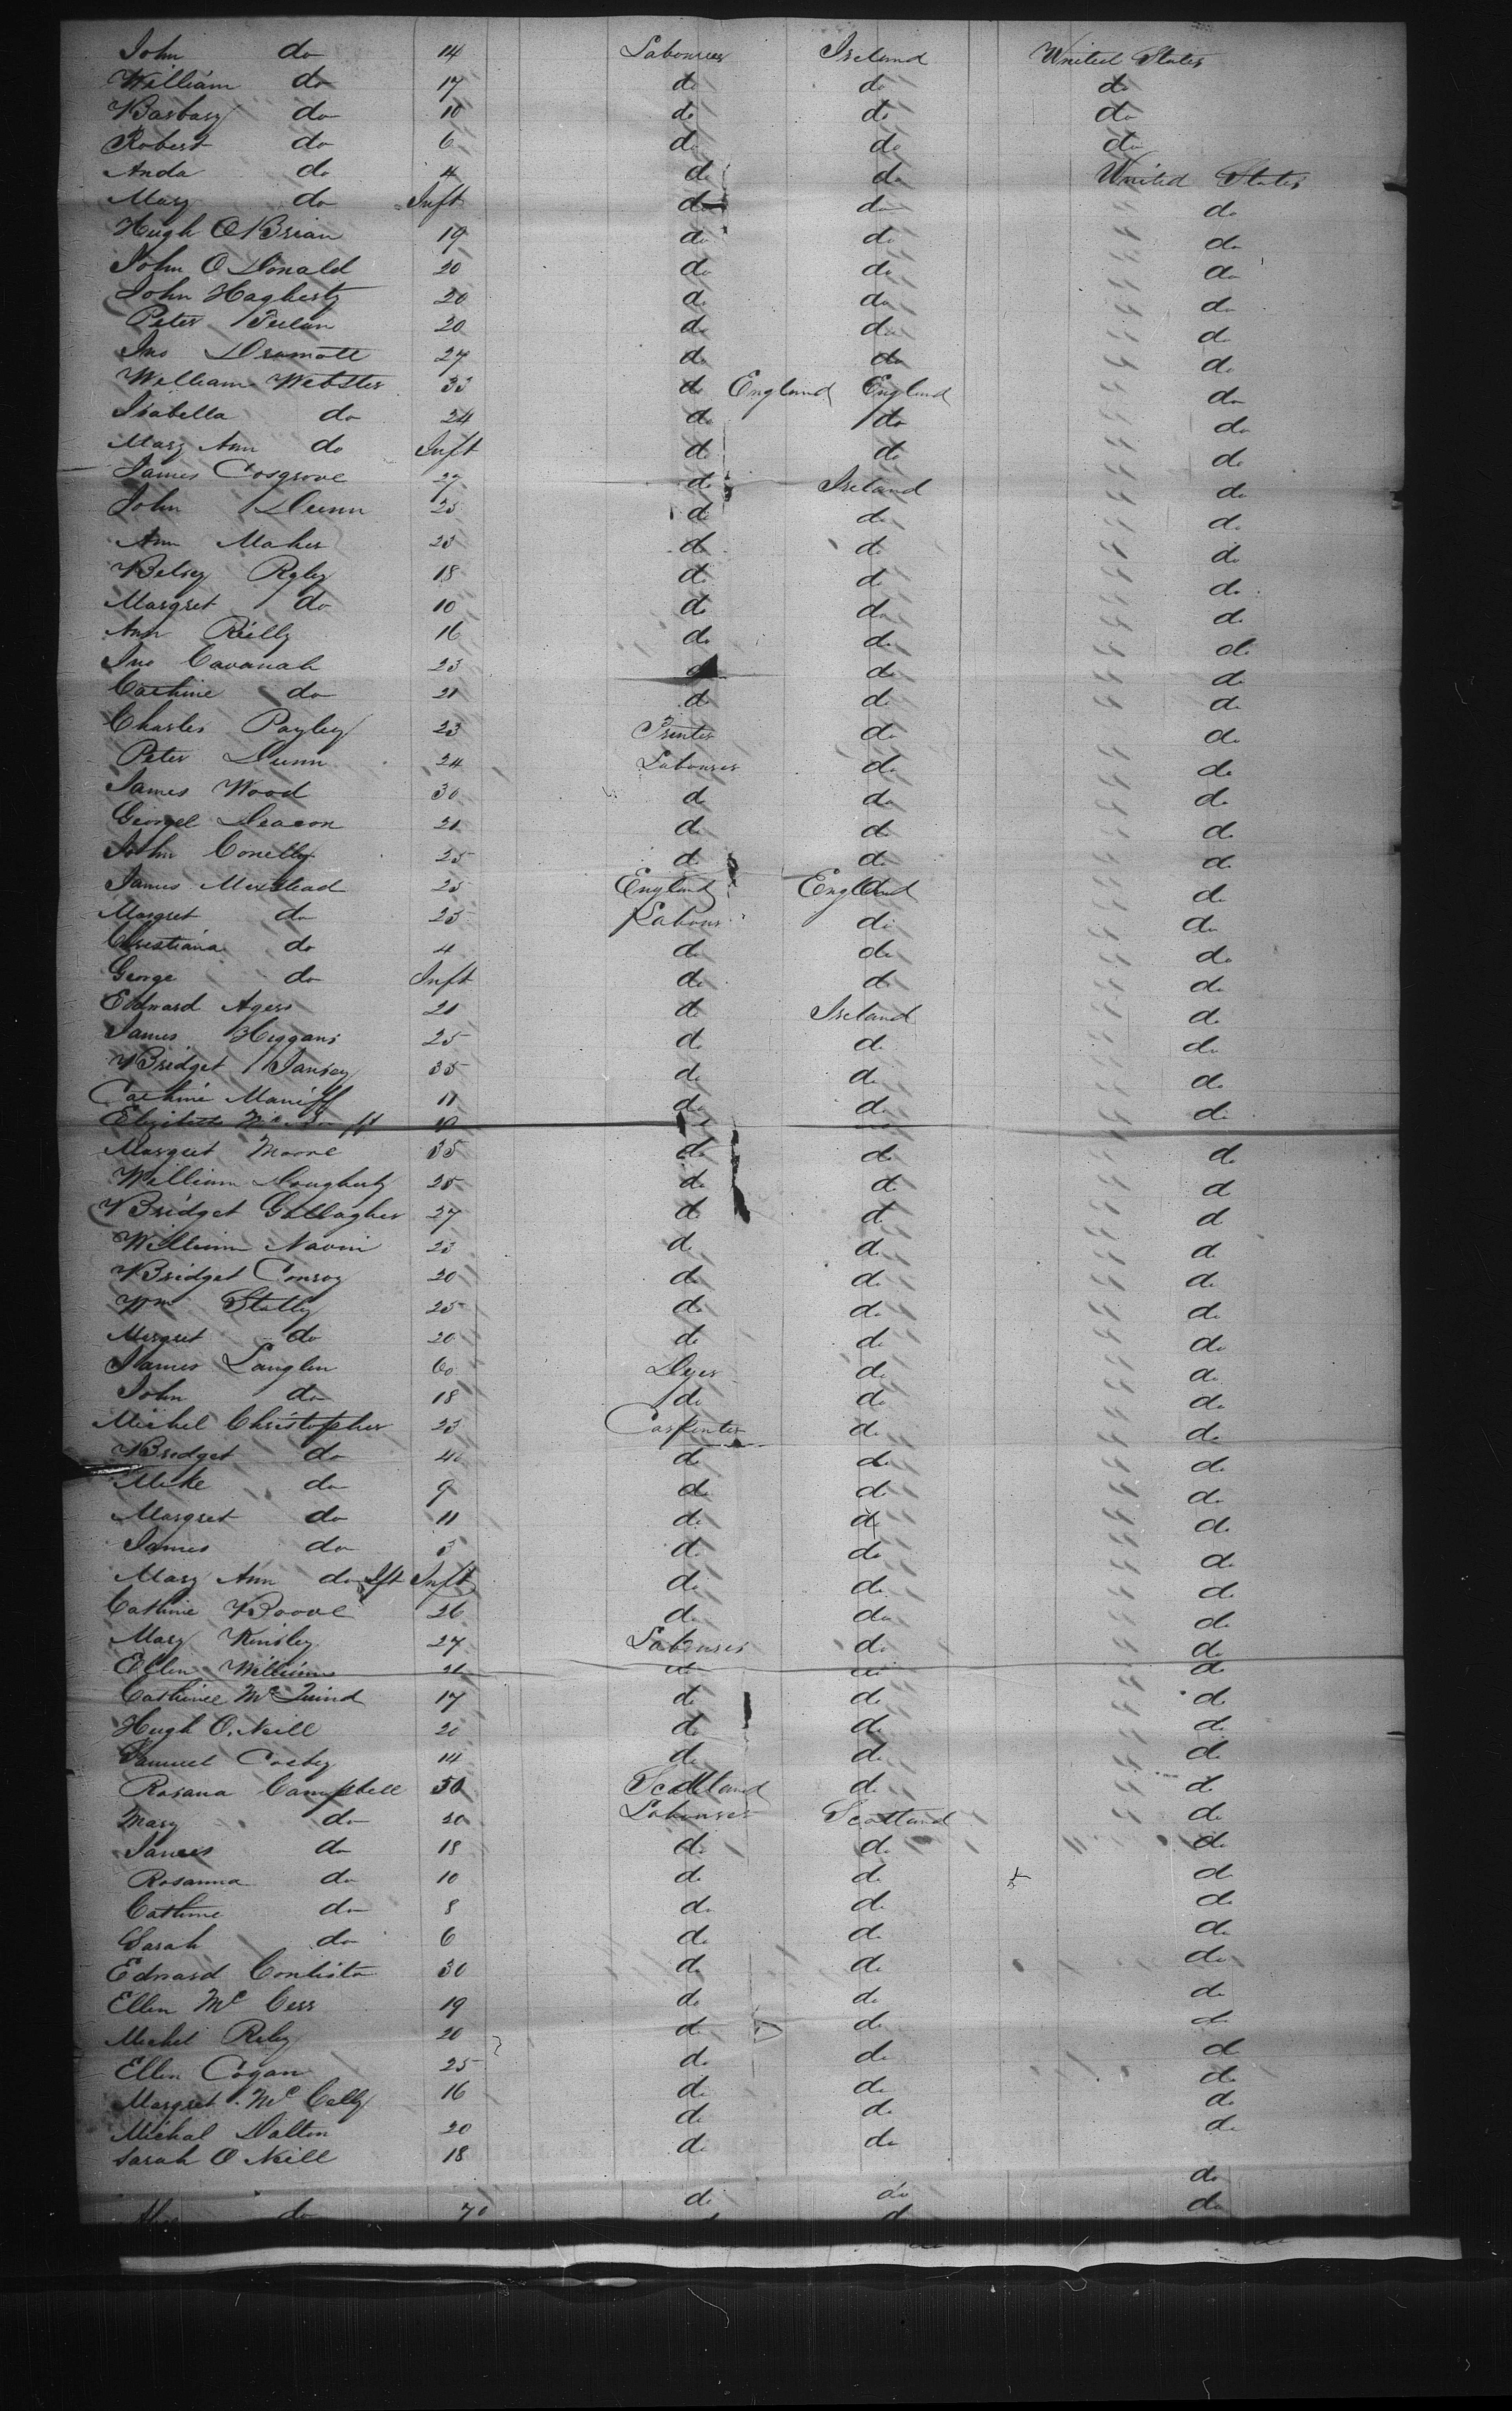 John do 14 Labourer Ireland United States
William do 17 do do do
Barbary do 10 do do do
Robert do 6 do do do
Anda do 4 do do United States
Mary do Inft do do do
Hugh O Brian 19 do do do
John O Donald 20 do do do
John Hagherty 20 do do do
Peter 20 do do do
Jno Dramott 27 do do do
William Webster 33 do England England do
Isabella do 24 do do do
Mary Ann do Inft do do do
James Cosgrove 27 do Ireland do
John Dunn 25 do do do
Ann Maher 23 do do do
Betsey Ryley 18 do do do
Margret do 10 do do do
Ann Reilly 16 do do do
Jno Cavanah 23 do do do
Cathine do 21 do do do
Charles Payley 23 Printer do do
Peter Dunn 24 Labourer do do
James Wood 30 do do do
George Deacon 21 do do do
John Conelly 25 do do do
James 25 England England do
Margret do 25 Labour do do
Christiana do 4 do do do
George do Inft do do do
Edward Agers 21 do Ireland do
James Higgans 25 do do do
Bridget 35 do do do
Cathine 11 do do do
Elizabeth 10
Margret Moore 35 do do do
William Dougherty 25 do do do
Bridget Gallagher 27 do do do
William Navin 23 do do do
Bridget Conroy 20 do do do
Wm Statly 25 do do do
Margret do 20 do do do
James Langlen 60 Dyer do do
John do 18 do do do
Michel Christopher 23 Carpenter do do
Bridget do 40 do do do
Mike do 9 do do do
Margret do 11 do do do
James do 3 do do do
Mary Ann do Ift Inft do do do
Cathine Boove 26 do do do
Mary Kinsley 27 Labourer do do
Ellen Williams 21 do do do
Cathinee Mc Quind 17 do do do
Hugh O. Neill 20 do do do
Samuel Cosby 14 do do do
Rosana Campbell 50 Scotland do do
Mary do 20 Labourer Scotland do
James do 18 do do do
Rosanna do 10 do do do
Cathine do 8 do do do
Sarah do 6 do do do
Edward 30 do do do
Ellen Mc 19 do do do
Michel Riley 20 do do do
Ellen Cogan 25 do do do
Margret Mc Cally 16 do do do
Michal Dalton 20 do do do
Sarah O Neill 18 do do do
do 70 do do do